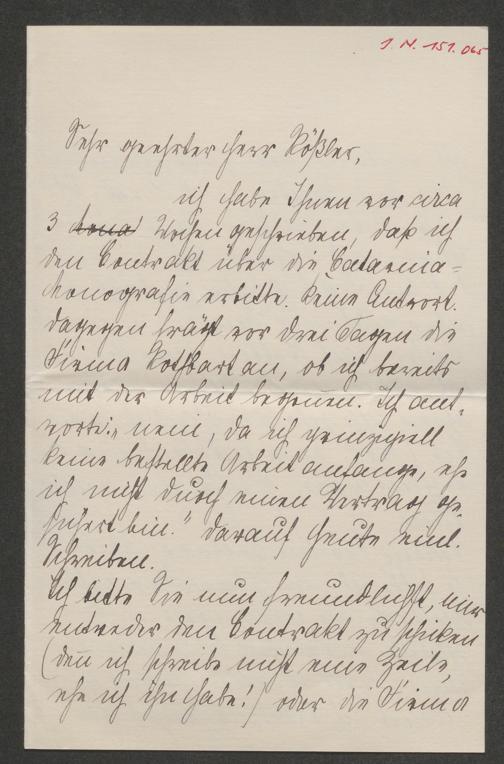 J. N. 151.065
Sehr geehrter Herr Rößler,
ich habe Ihnen vor circa
3 Wochen geschrieben, daß ich
den Contrakt über die
monografie erbitte. Keine Antwort.
Dagegen frägt vor drei Tagen die
Firma an, ob ich bereits
mit der Arbeit begonnen. Ich ant-
worte: „nein, da ich prinzipiell
keine bestellte Arbeit anfange, ehe
ich nicht durch einen Vertrag ge-
sichert bin." Darauf heute einl.
Schreiben.
Ich bitte Sie nun freundlichst, mir
entweder den Contrakt zu schicken
(denn ich schreibe nicht eine Zeile,
ehe ich ihn habe!) oder die Firma